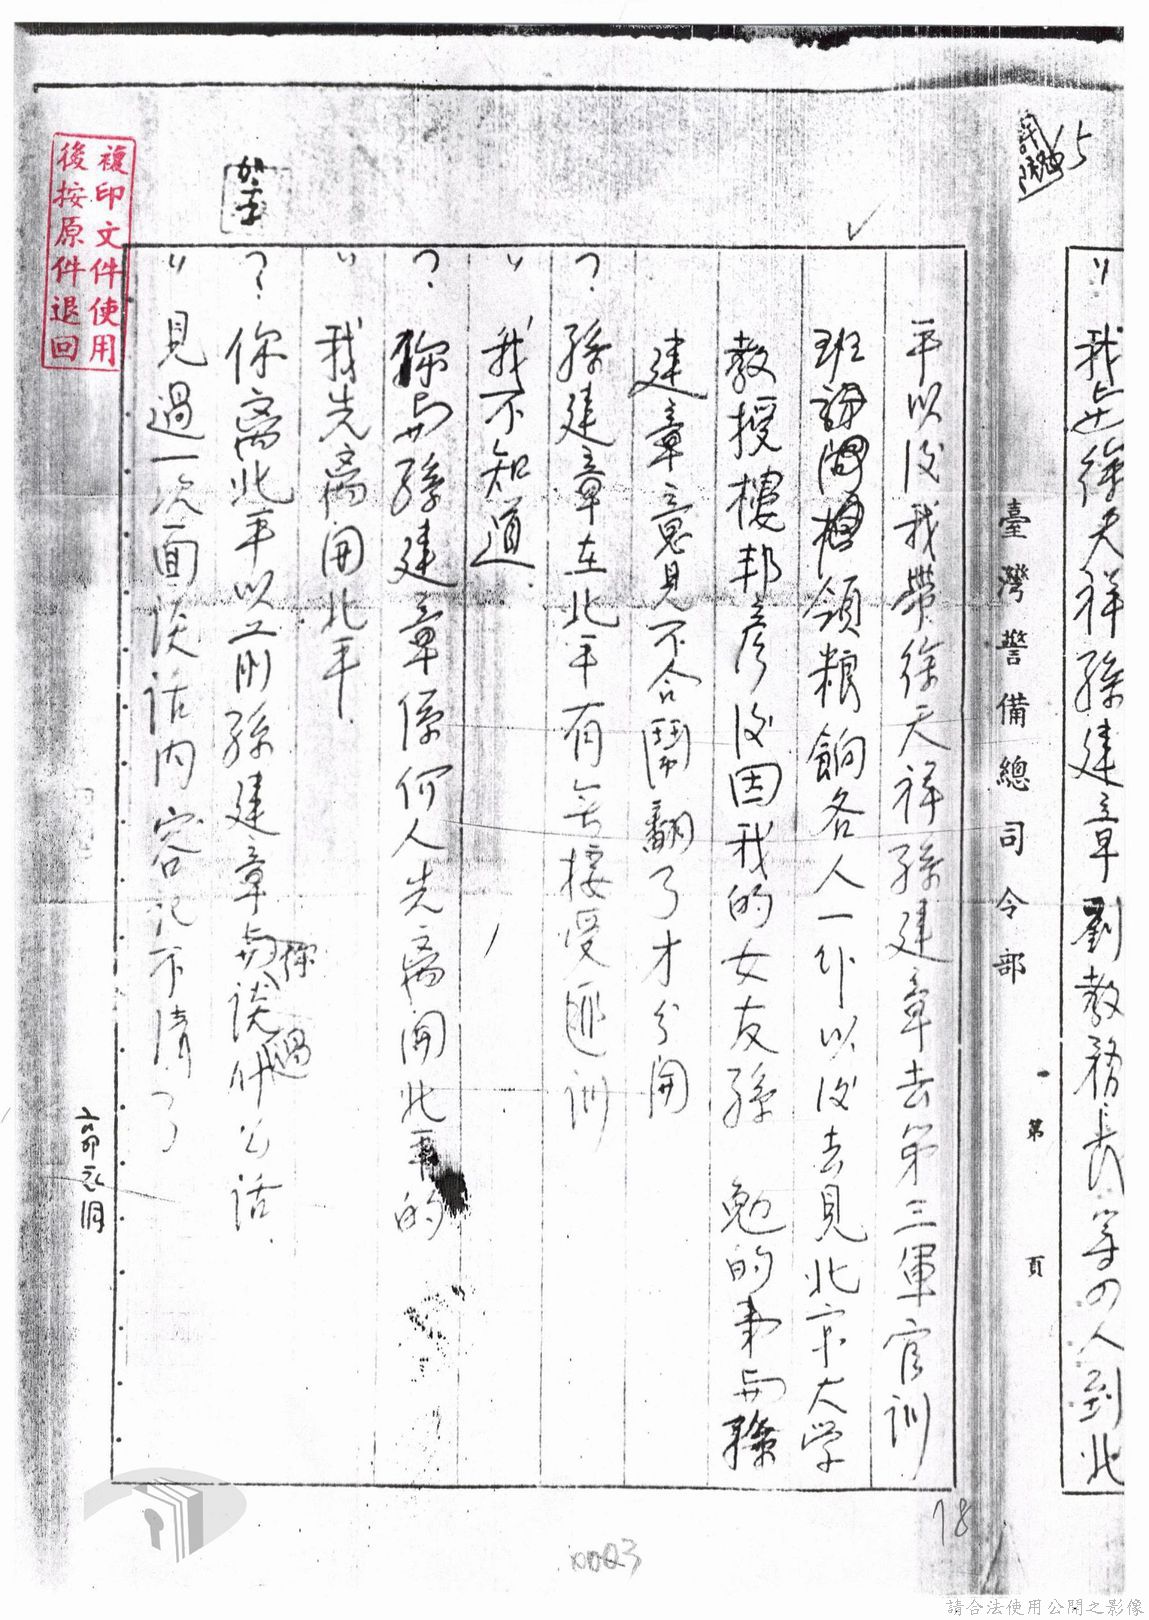 15
〃我與徐天祥孫建章劉教務長等四人到北
臺灣警備總司令部
第 頁
平以後我帶徐天祥孫建章去第三軍官訓
班訓領粮餉各人一份以後去見北京大学
教授樓邦彥後因我的女友孫 勉的事與孫
建章意見不合鬧翻了才分開
?孫建章在北平有無接受匪訓
〃我不知道
?你與孫建章係何人先离開北平的
〃我先离開北平
?你离北平以前孫建章與你談過什么話
〃見過一次面談話内容记不清了
複印文件使用
後按原件退回
18
0023
請合法使用公開之影像